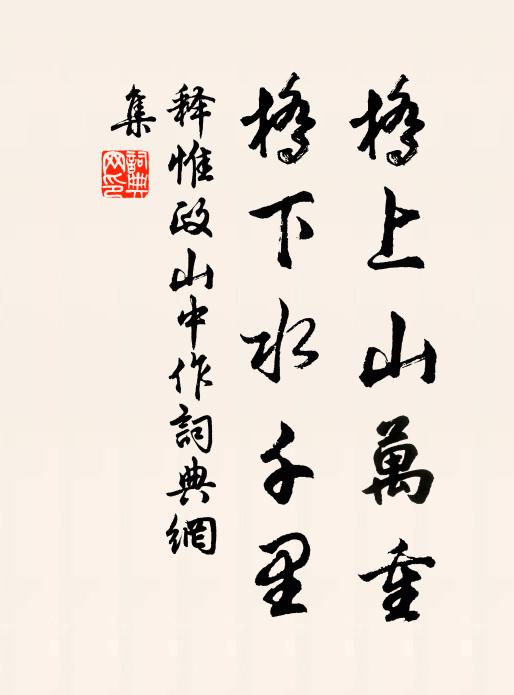 橋上山萬重
橋下水千里
释惟政山中作詞典網
集
詞典網印